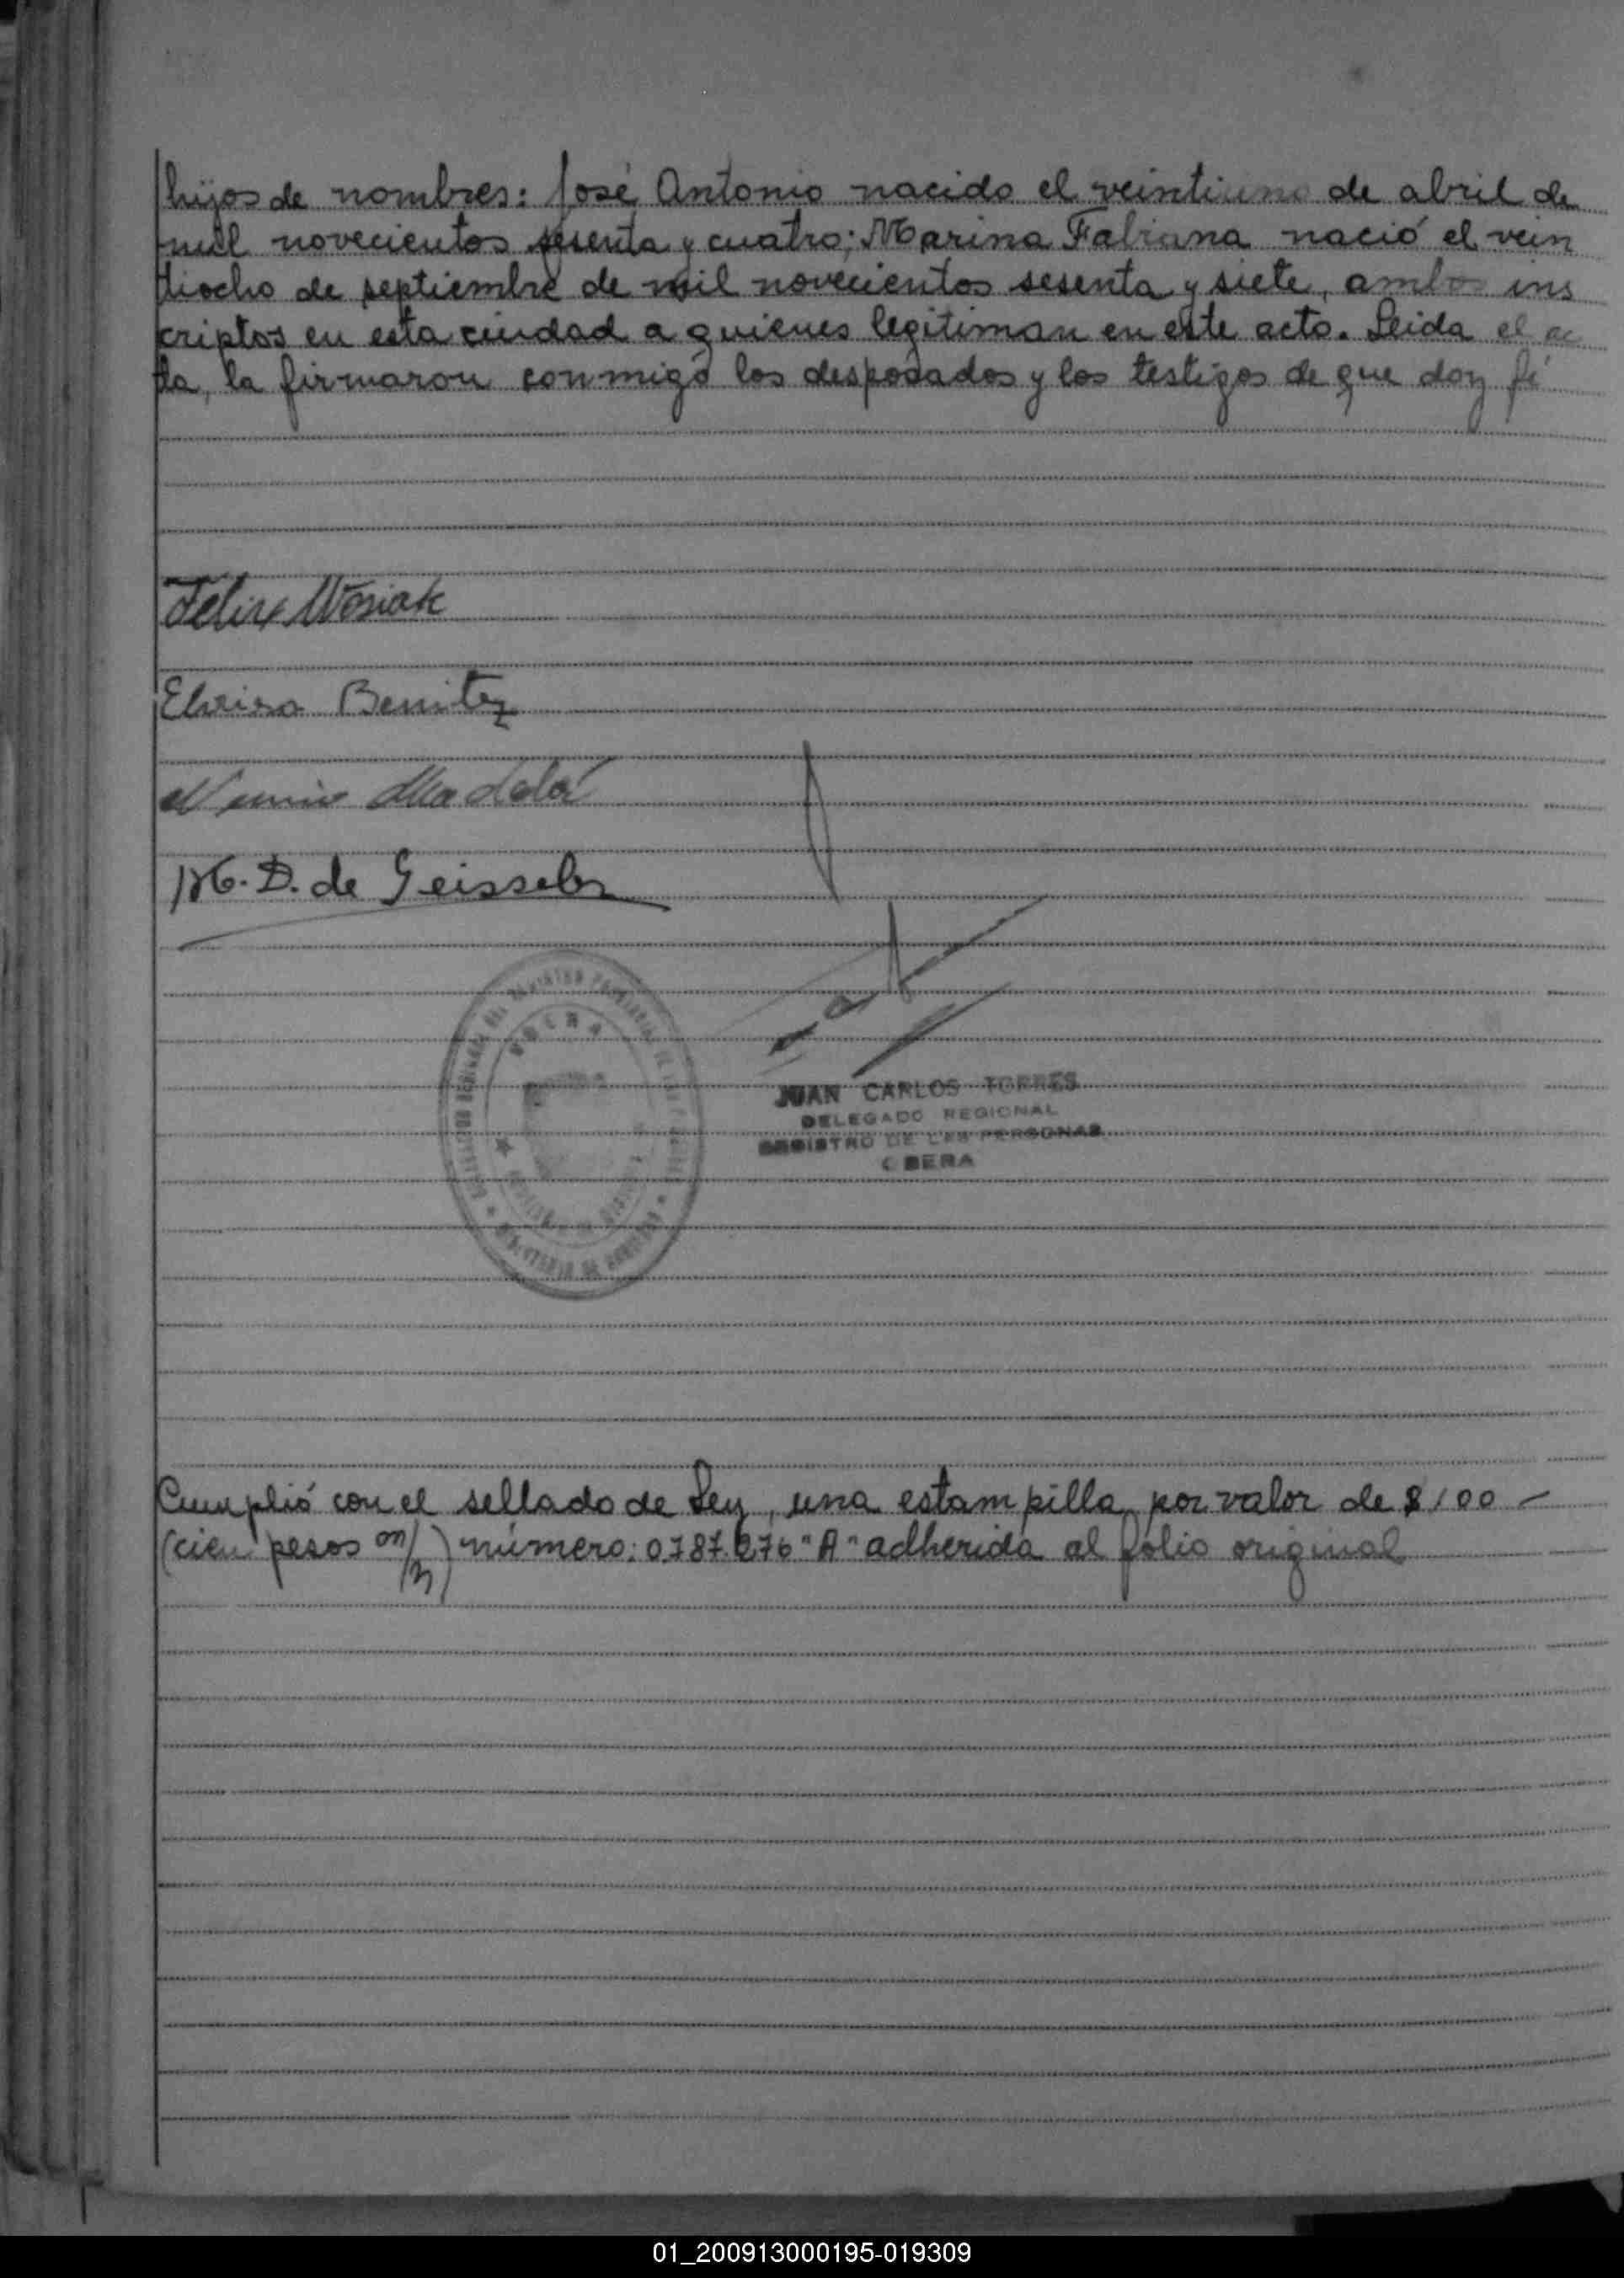 hijos de nombres: José Antonio nacido el veintiuno de abril de
mil novecientos sesenta y cuatro; Marina Fabiana nació el vein
tiocho de septiembre de mil novecientos sesenta y siete, ambos ins
criptos en esta ciudad a quienes legitiman en este acto. Leida el ac
ta, la firmaron conmigo los desposados y los testigos de que doy fé
Felix Wosiak
Elvira Benitez
M. D. de Geisseler
OBERA
JUAN CARLOS TORRES
DELEGADO REGIONAL
REGISTRO DE LAS PERSONAS
OBERA
Cumplió con el sellado de Ley, una estampilla por valor de $ 100 -
(cien pesos m/n) número: 0787.276 "A" adherida al folio original
01_200913000195-019309